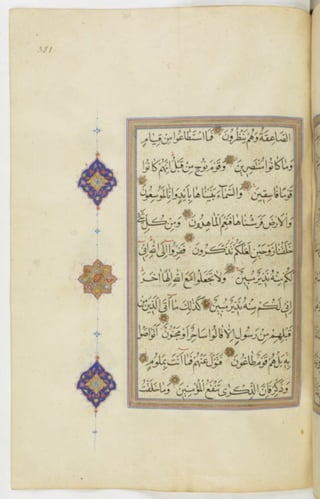 الصَّاعِقَةُ وَهُمْ يَنْظُرُونَ فَمَا اسْتَطَاعُوا مِنْ قِيَامٍ
وَمَا كَانُوا مُنْتَصِرِينَ وَقَوْمَ نُوحٍ مِنْ قَبْلُ إِنَّهُمْ كَانُوا
قَوْمًا فَاسِقِينَ وَالسَّمَاءَ بَنَيْنَاهَا بِأَيْدٍ وَإِنَّا لَمُوسِعُونَ
وَالْأَرْضَ فَرَشْنَاهَا فَنِعْمَ الْمَاهِدُونَ وَمِنْ كُلِّ شَيْءٍ
خَلَقْنَا زَوْجَيْنِ لَعَلَّكُمْ تَذَكَّرُونَ فَفِرُّوا إِلَى اللَّهِ إِنِّي
لَكُمْ مِنْهُ نَذِيرٌ مُبِينٌ وَلَا تَجْعَلُوا مَعَ اللَّهِ إِلَهًا آخَرَ
إِنِّي لَكُمْ مِنْهُ نَذِيرٌ مُبِينٌ كَذَلِكَ مَا أَتَى الَّذِينَ مِنْ
قَبْلِهِمْ مِنْ رَسُولٍ إِلَّا قَالُوا سَاحِرٌ أَوْ مَجْنُونٌ أَتَوَاصَوْا
بِهِ بَلْ هُمْ قَوْمٌ طَاغُونَ فَتَوَلَّ عَنْهُمْ فَمَا أَنْتَ بِمَلُومٍ
وَذَكِّرْ فَإِنَّ الذِّكْرَى تَنْفَعُ الْمُؤْمِنِينَ وَمَا خَلَقْتُ